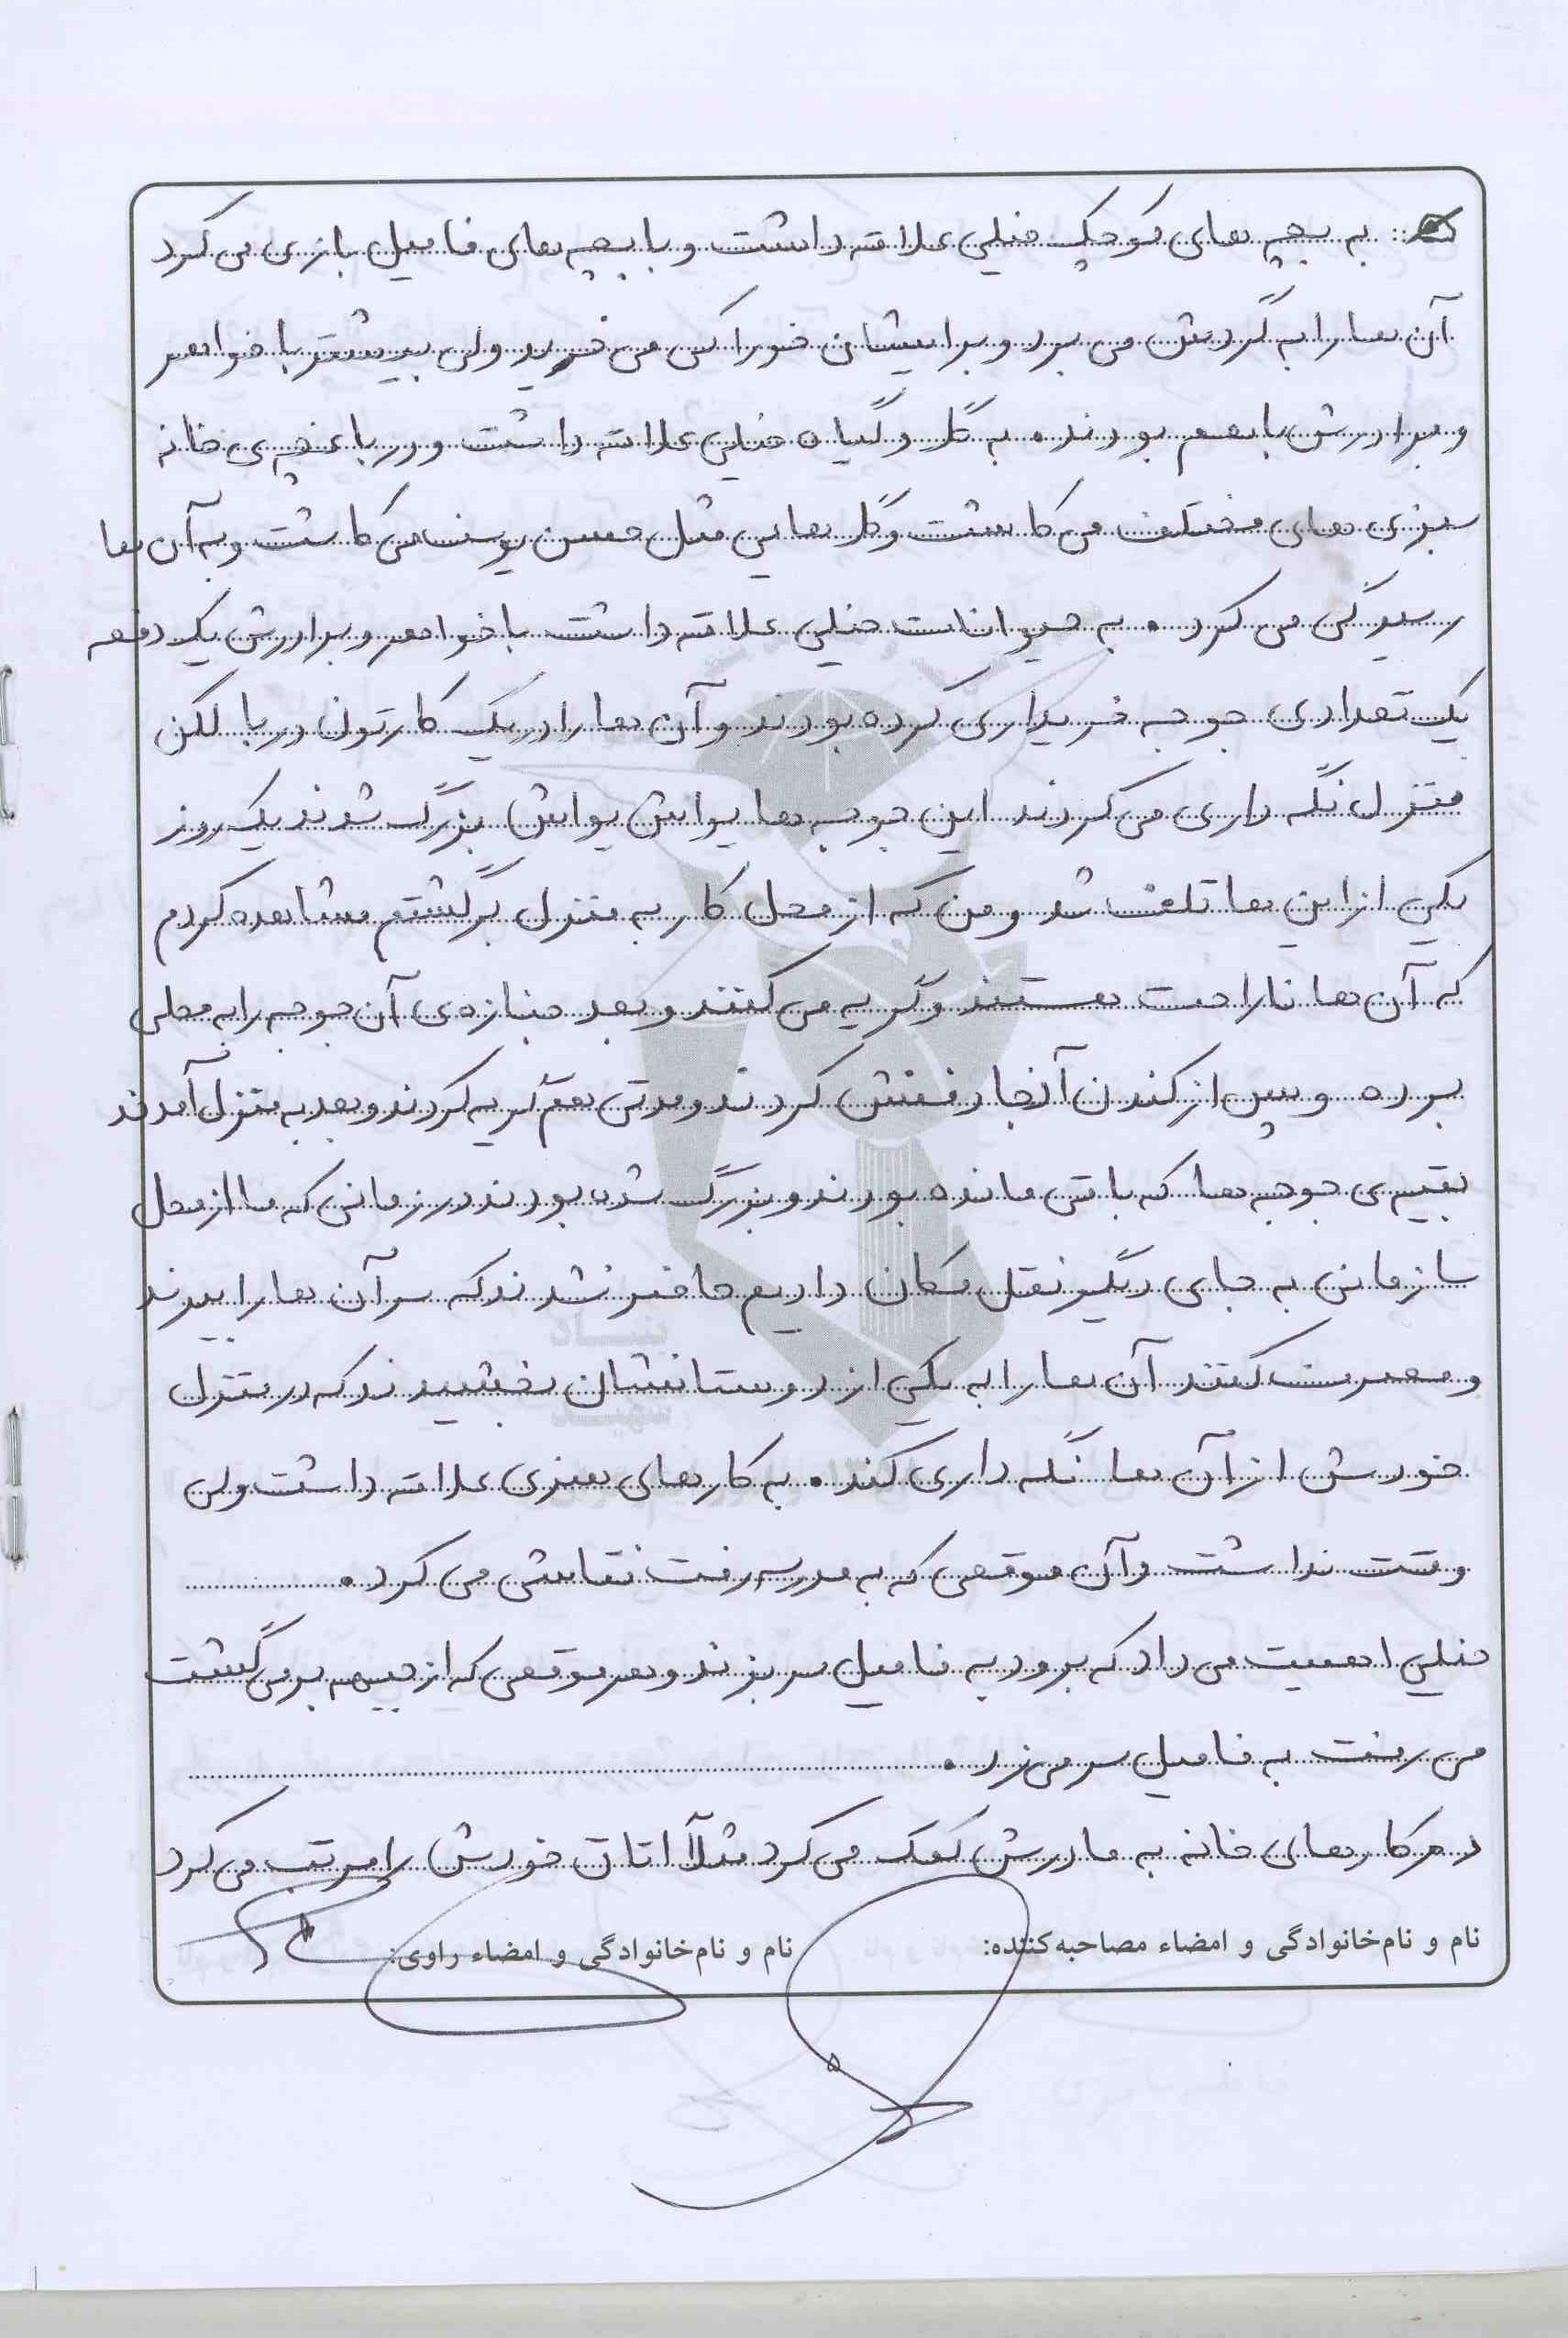 به بچه های کوچک خیلی علاقه داشت و با بچه های فامیل بازی می کرد
آن ها را به گردش می برد و برایشان خوراکی می خرید ولی بیشتر با خواهر
و برادرش با هم بودند. به گل و گیاه خیلی علاقه داشت و در باغچه ی خانه
سبزی های مختلف می کاشت و گل هایی مثل حسن یوسف می کاشت و به آن ها
رسیدگی می کرد. به حیوانات خیلی علاقه داشت با خواهر و برادرش یک دفعه
یک تعدادی جوجه خریداری کرده بودند و آن ها را در یک کارتون در بالکن
منزل نگه داری می کردند این جوجه ها یواش یواش بزرگ شدند یک روز
یکی از این ها تلف شد و من که از محل کار به منزل برگشتم مشاهده کردم
که آن ها ناراحت هستند و گریه می کنند و بعد جنازه ی آن جوجه را به محلی
برده و پس از کندن آنجا دفنش کردند و مدتی هم گریه کردند و بعد به منزل آمدند
بقیه ی جوجه ها که باقی مانده بودند و بزرگ شده بودند در زمانی که ما از محل
سازمانی به جای دیگر نقل مکان دادیم حاضر نشدند که سر آن ها را ببرند
و مصرف کنند آن ها را به یکی از دوستانشان بخشیدند که در منزل
خودش از آن ها نگه داری کند. به کارهای هنری علاقه داشت ولی
وقت نداشت و آن موقعی که به مدرسه رفت نقاشی می کرد.
خیلی اهمیت می داد که برود به فامیل سر بزند و هر موقعی که از جبهه برمی گشت
می رفت به فامیل سر می زد.
در کارهای خانه به مادرش کمک می کرد مثلاً اتاق خودش را مرتب می کرد
نام و نام‌خانوادگی و امضاء مصاحبه‌کننده: نام و نام‌خانوادگی و امضاء راوی:
بنیاد
شهید